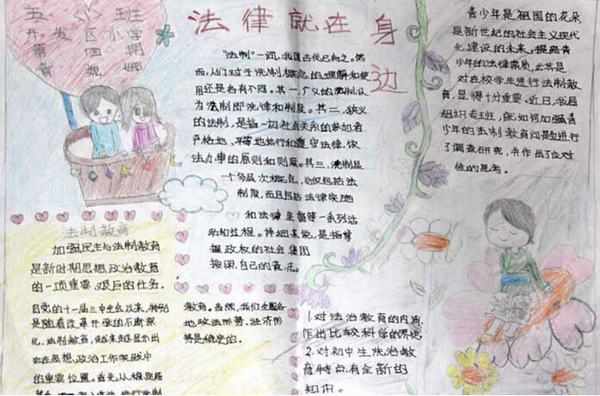 法律就在身边
五（）班
开发区小学
"法制"一词，我国古代已有之。然
而，人们对于法制概念的理解和使
用还是各有不同。其一，广义的法制，认
为法制即法律和制度。其二，狭义
的法制，是指一切社会关系的参加者
严格地、平等地执行和遵守法律，依
法办事的原则和制度。其三，法制是
一个多层次的概念，它不仅包括法
律制度，而且包括法律实施
和法律监督等一系列活
动和过程。
掌握政权的社会集团
按照自己的意志。
青少年是祖国的花朵
是新世纪的社会主义现代
化建设的未来，提高青
少年的法律素质，尤其是
对在校学生进行法制教
育，显得十分重要。近日，我县
组织专班，就如何加强青
少年的法制教育问题进行
了调查研究，并作出了应对
性的思考。
法制教育
加强民主与法制教育
是新时期思想政治教育
的一项重要、艰巨的任务。
自党的十一届三中全会以来，
是随着改革开放的不断深
化，法制教育，越来越显示出
它在思想、政治工作领域中
的重要位置。首先，从
教育。当然，我们
地政治形势、经济形
势是稳定的。
1.对法治教育的内涵
作出比较科学的界定
2.对初中生法治教
育特点有全新的
知识。